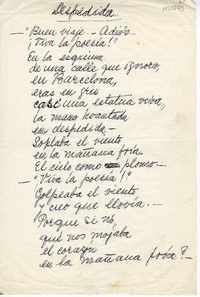 Despedida
— "Buen viaje. – Adiós.
¡Viva la poesía!"
En la esquina
de una calle que ignoro,
en Barcelona,
eras en gris
casi una estatua viva,
la mano levantada
en despedida –
Soplaba el viento
en la mañana fría.
El cielo como plomo –
— "¡Viva la poesía!"
Golpeaba el viento
y creo que llovía –
Porque si no
que nos mojaba
el corazón
en la mañana fría? –